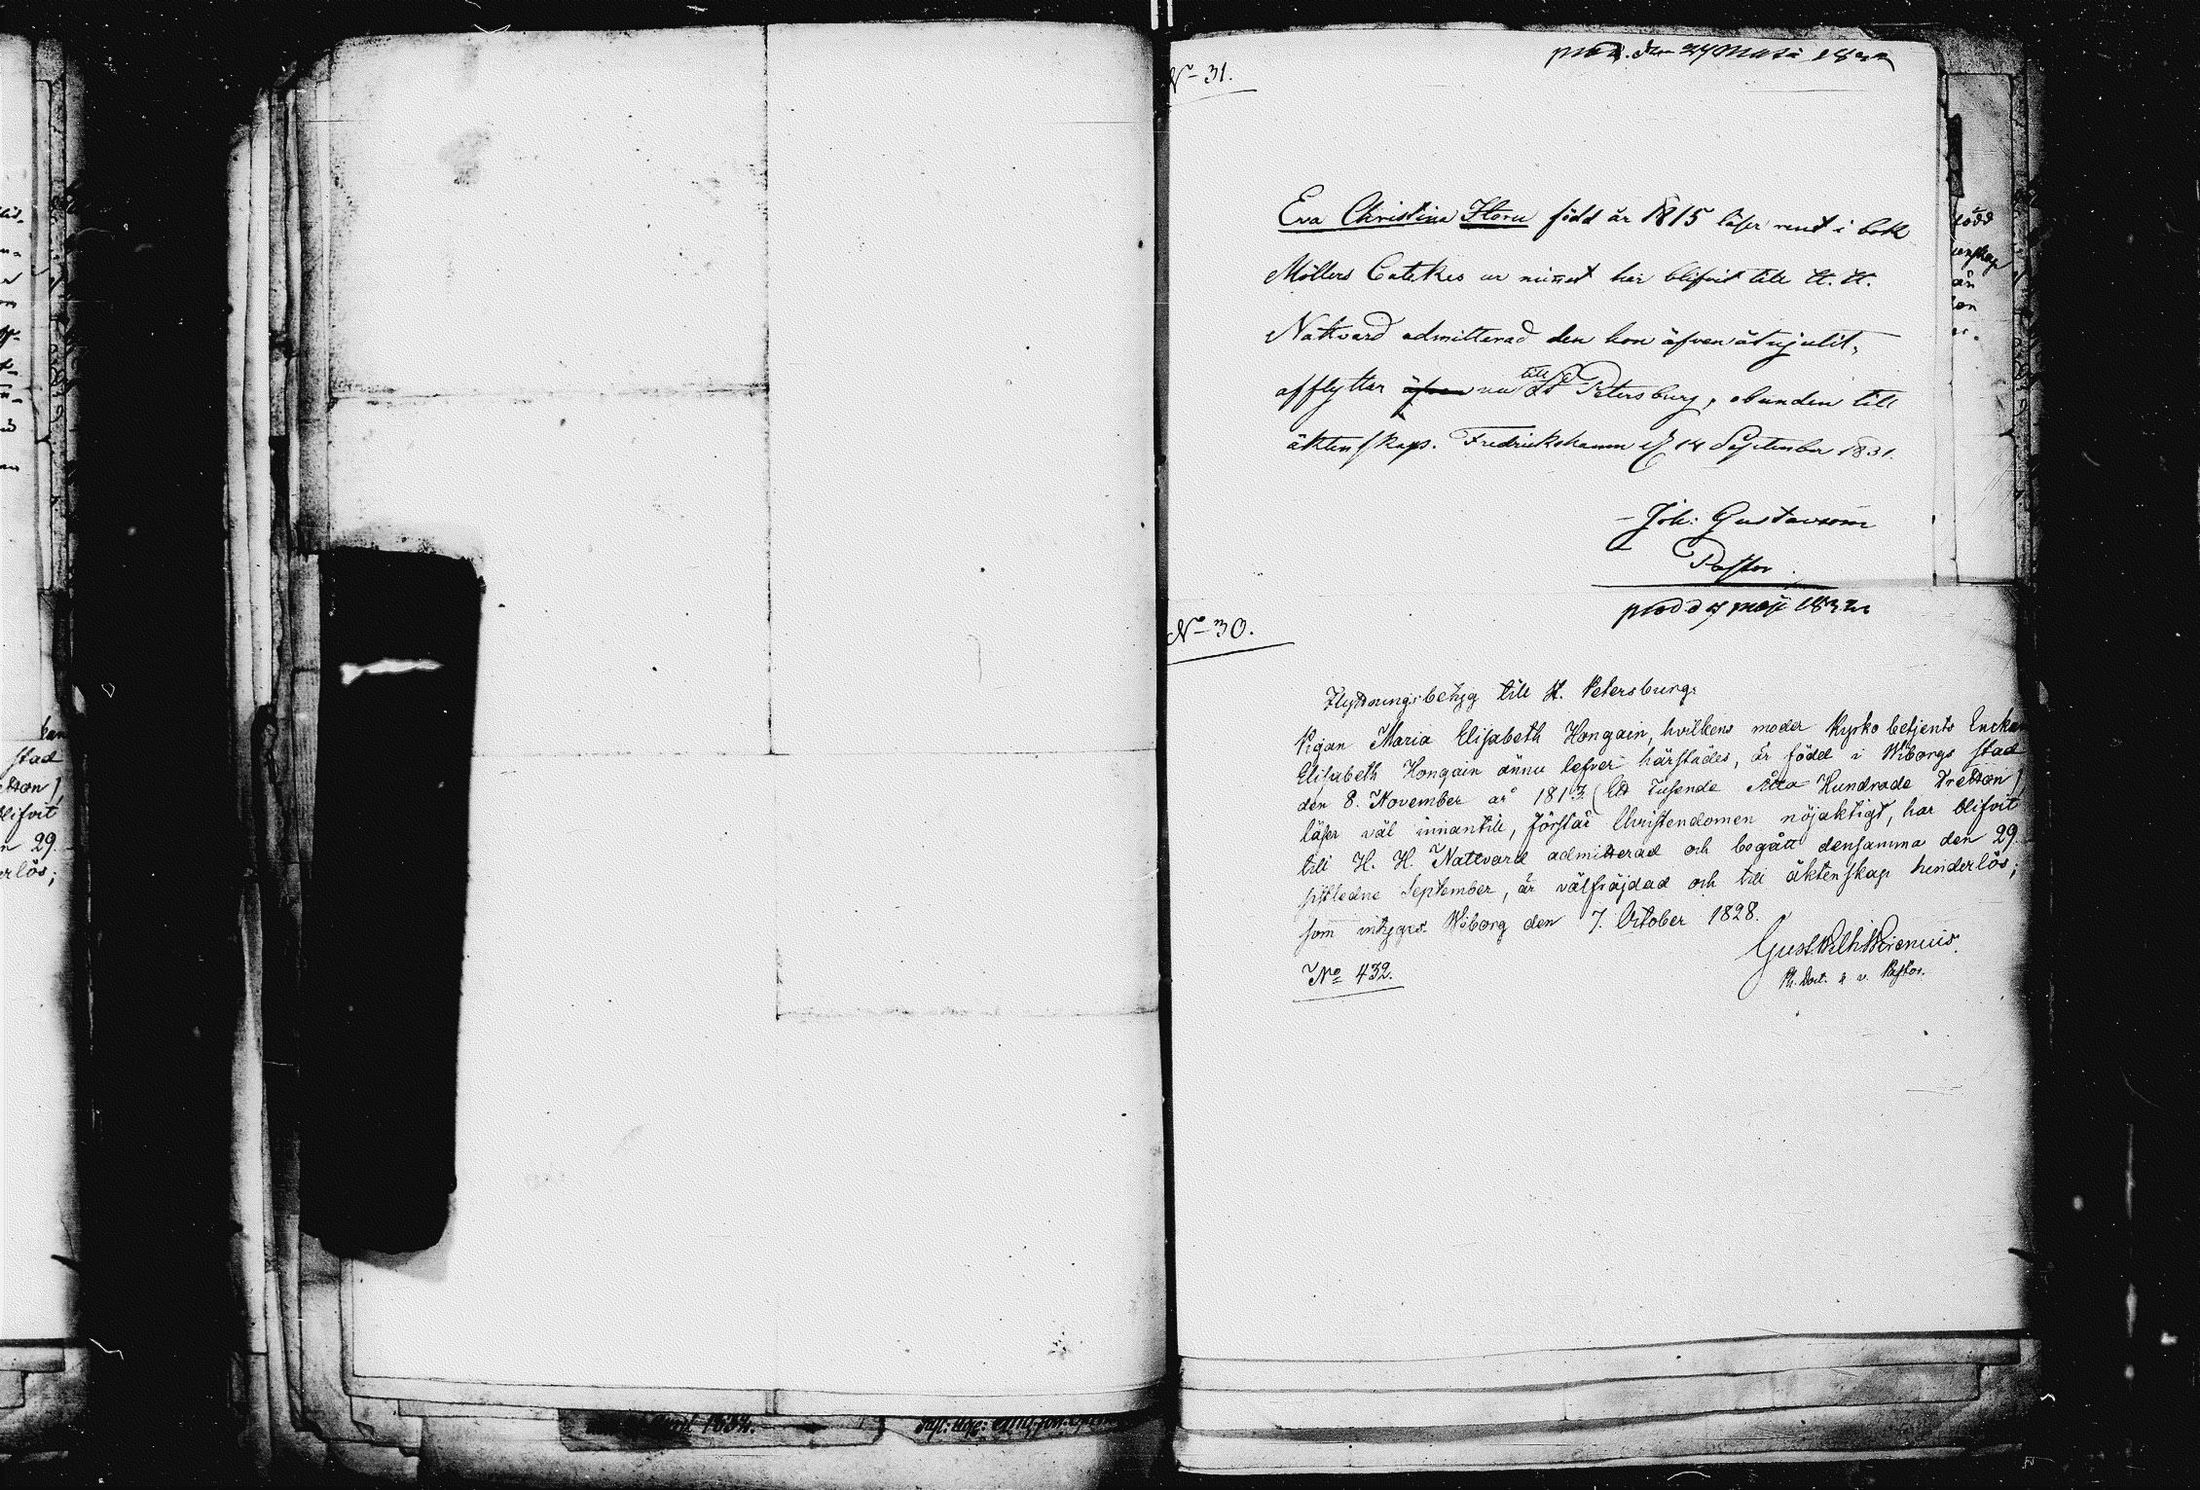 N° 31.
Eva Christina Horn född år 1815 läser rent i bok
Möllers Cateches ur minnet har blifvit till H. H.
Nattvard admitterad den hon äfven åtnjutit,
afflyttar nu till St Petersburg, obunden till
äktenskap. Fredrickshamn d 14 September 1831.
Joh: Gustavson
Pastor.
N° 30.
Flyttningsbetyg till St. Petersburg.
Pigan Maria Elisabeth Hongain, hvilkens moder Kyrkobetjents Enckan
Elisabeth Hongain ännu lefver härstädes, är född i Wiborgs stad
den 8. November år 1813 (Ett Tusende Åtta Hundrade Tretton),
läser väl innantill, förstår Christendomen nöjaktigt, har blifvit
till H. H. Nattvard admitterad och begått densamma den 29.
sistledne September, är välfräjdad och till äktenskap hinderlös;
som intygas. Wiborg den 7. October 1828.
Gust. Wilh.
v. Pastor.
N° 432.
stad
blifvit
29.
född
1832.